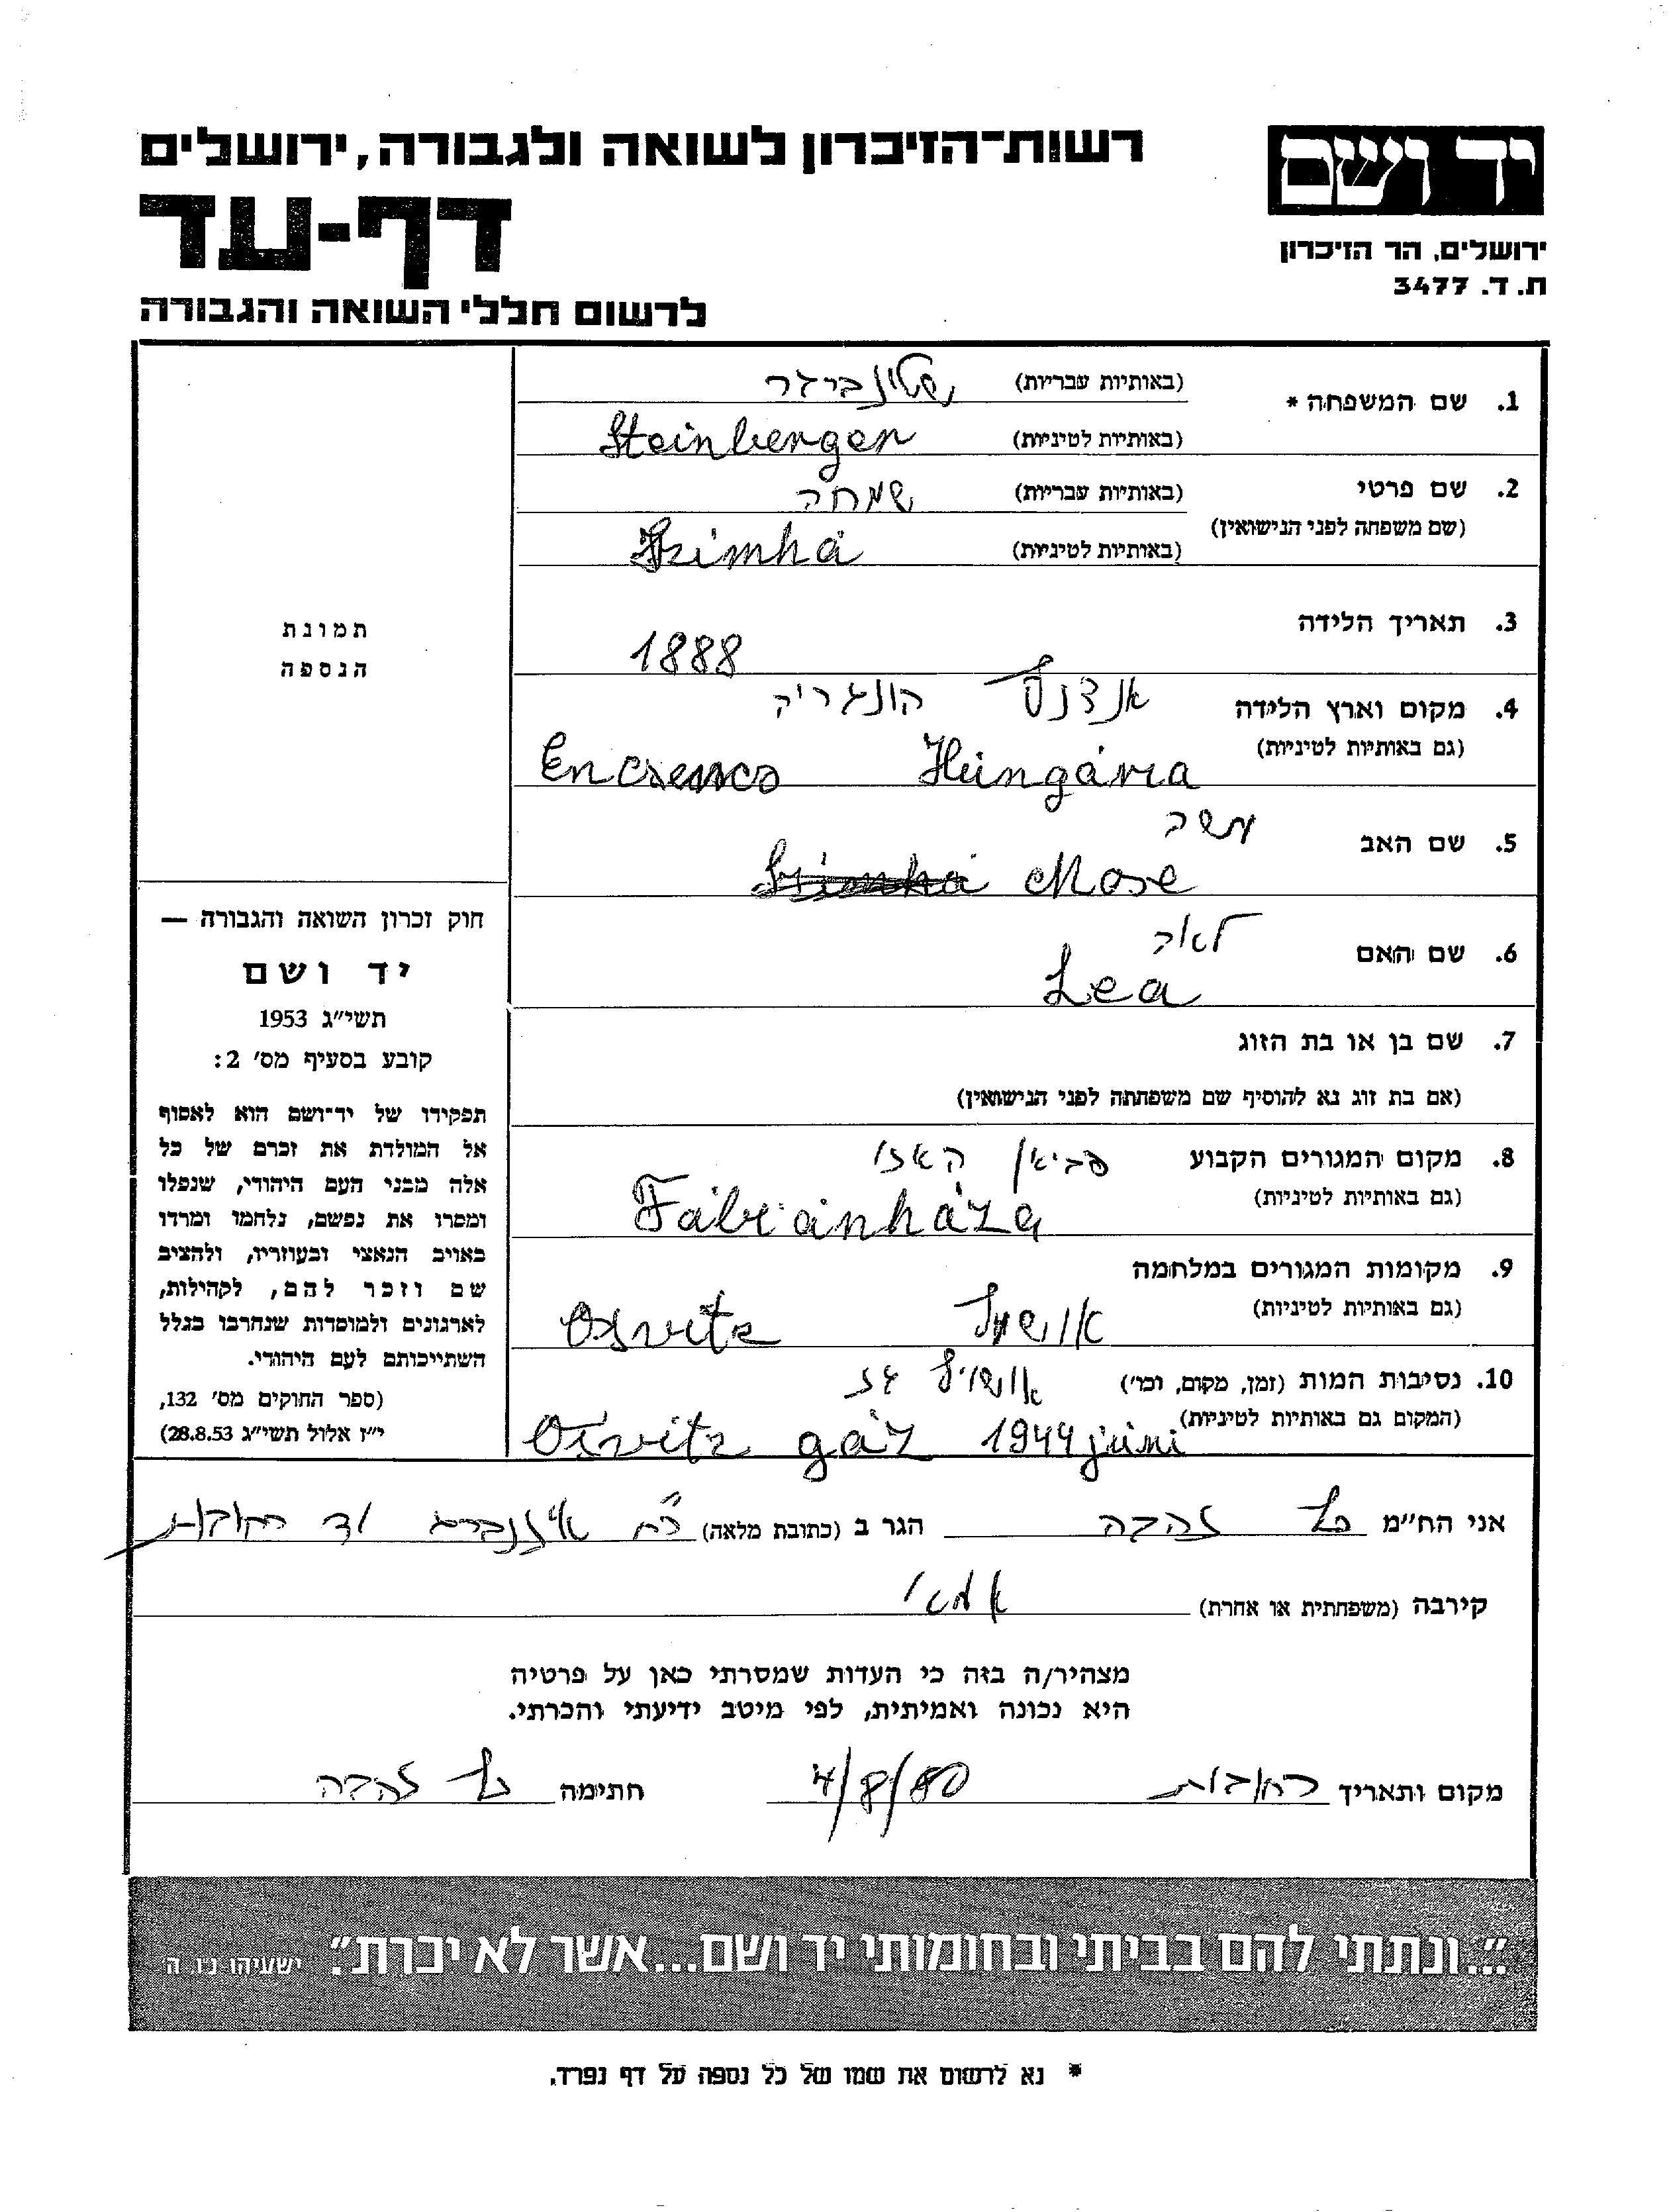 יד ושם
ירושלים, הר הזיכרון
ת. ד. 3477
רשות-הזיכרון לשואה ולגבורה, ירושלים
דף-עד
לרשום חללי השואה והגבורה
1. שם המשפחה * (באותיות עבריות) שטינברגר
(באותיות לטיניות) Steinberger
2. שם פרטי (באותיות עבריות) שמחה
(שם משפחה לפני הנישואין)
(באותיות לטיניות) Szimhá
3. תאריך הלידה 1888
4. מקום וארץ הלידה הונגריה
(גם באותיות לטיניות) Encsencs Hungária
5. שם האב משה
Mose
6. שם האם לאה
Lea
7. שם בן או בת הזוג
(אם בת זוג נא להוסיף שם משפחתה לפני הנישואין)
8. מקום המגורים הקבוע פביאן האזו
(גם באותיות לטיניות) Fábiánháza
9. מקומות המגורים במלחמה
(גם באותיות לטיניות) Osvitz
10. נסיבות המות (זמן, מקום, וכו') גז
(המקום גם באותיות לטיניות) Osvitz gáz 1944 júni
תמונת
הנספה
חוק זכרון השואה והגבורה —
יד ושם
תשי״ג 1953
קובע בסעיף מס׳ 2:
תפקידו של יד-ושם הוא לאסוף
אל המולדת את זכרם של כל
אלה מבני העם היהודי, שנפלו
ומסרו את נפשם, נלחמו ומרדו
באויב הנאצי ובעוזריו, ולהציב
שם וזכר להם, לקהילות,
לארגונים ולמוסדות שנחרבו בגלל
השתייכותם לעם היהודי.
(ספר החוקים מס׳ 132,
י״ז אלול תשי״ג 28.8.53)
אני הח״מ זהבה הגר ב (כתובת מלאה) רח אייזנברג רחובות
קירבה (משפחתית או אחרת)
מצהיר/ה בזה כי העדות שמסרתי כאן על פרטיה
היא נכונה ואמיתית, לפי מיטב ידיעתי והכרתי.
מקום ותאריך רחובות 4/8/80 חתימה זהבה
״...ונתתי להם בביתי ובחומותי יד ושם...אשר לא יכרת״. ישעיהו נ״ו ה
* נא לרשום את שמו של כל נספה על דף נפרד.